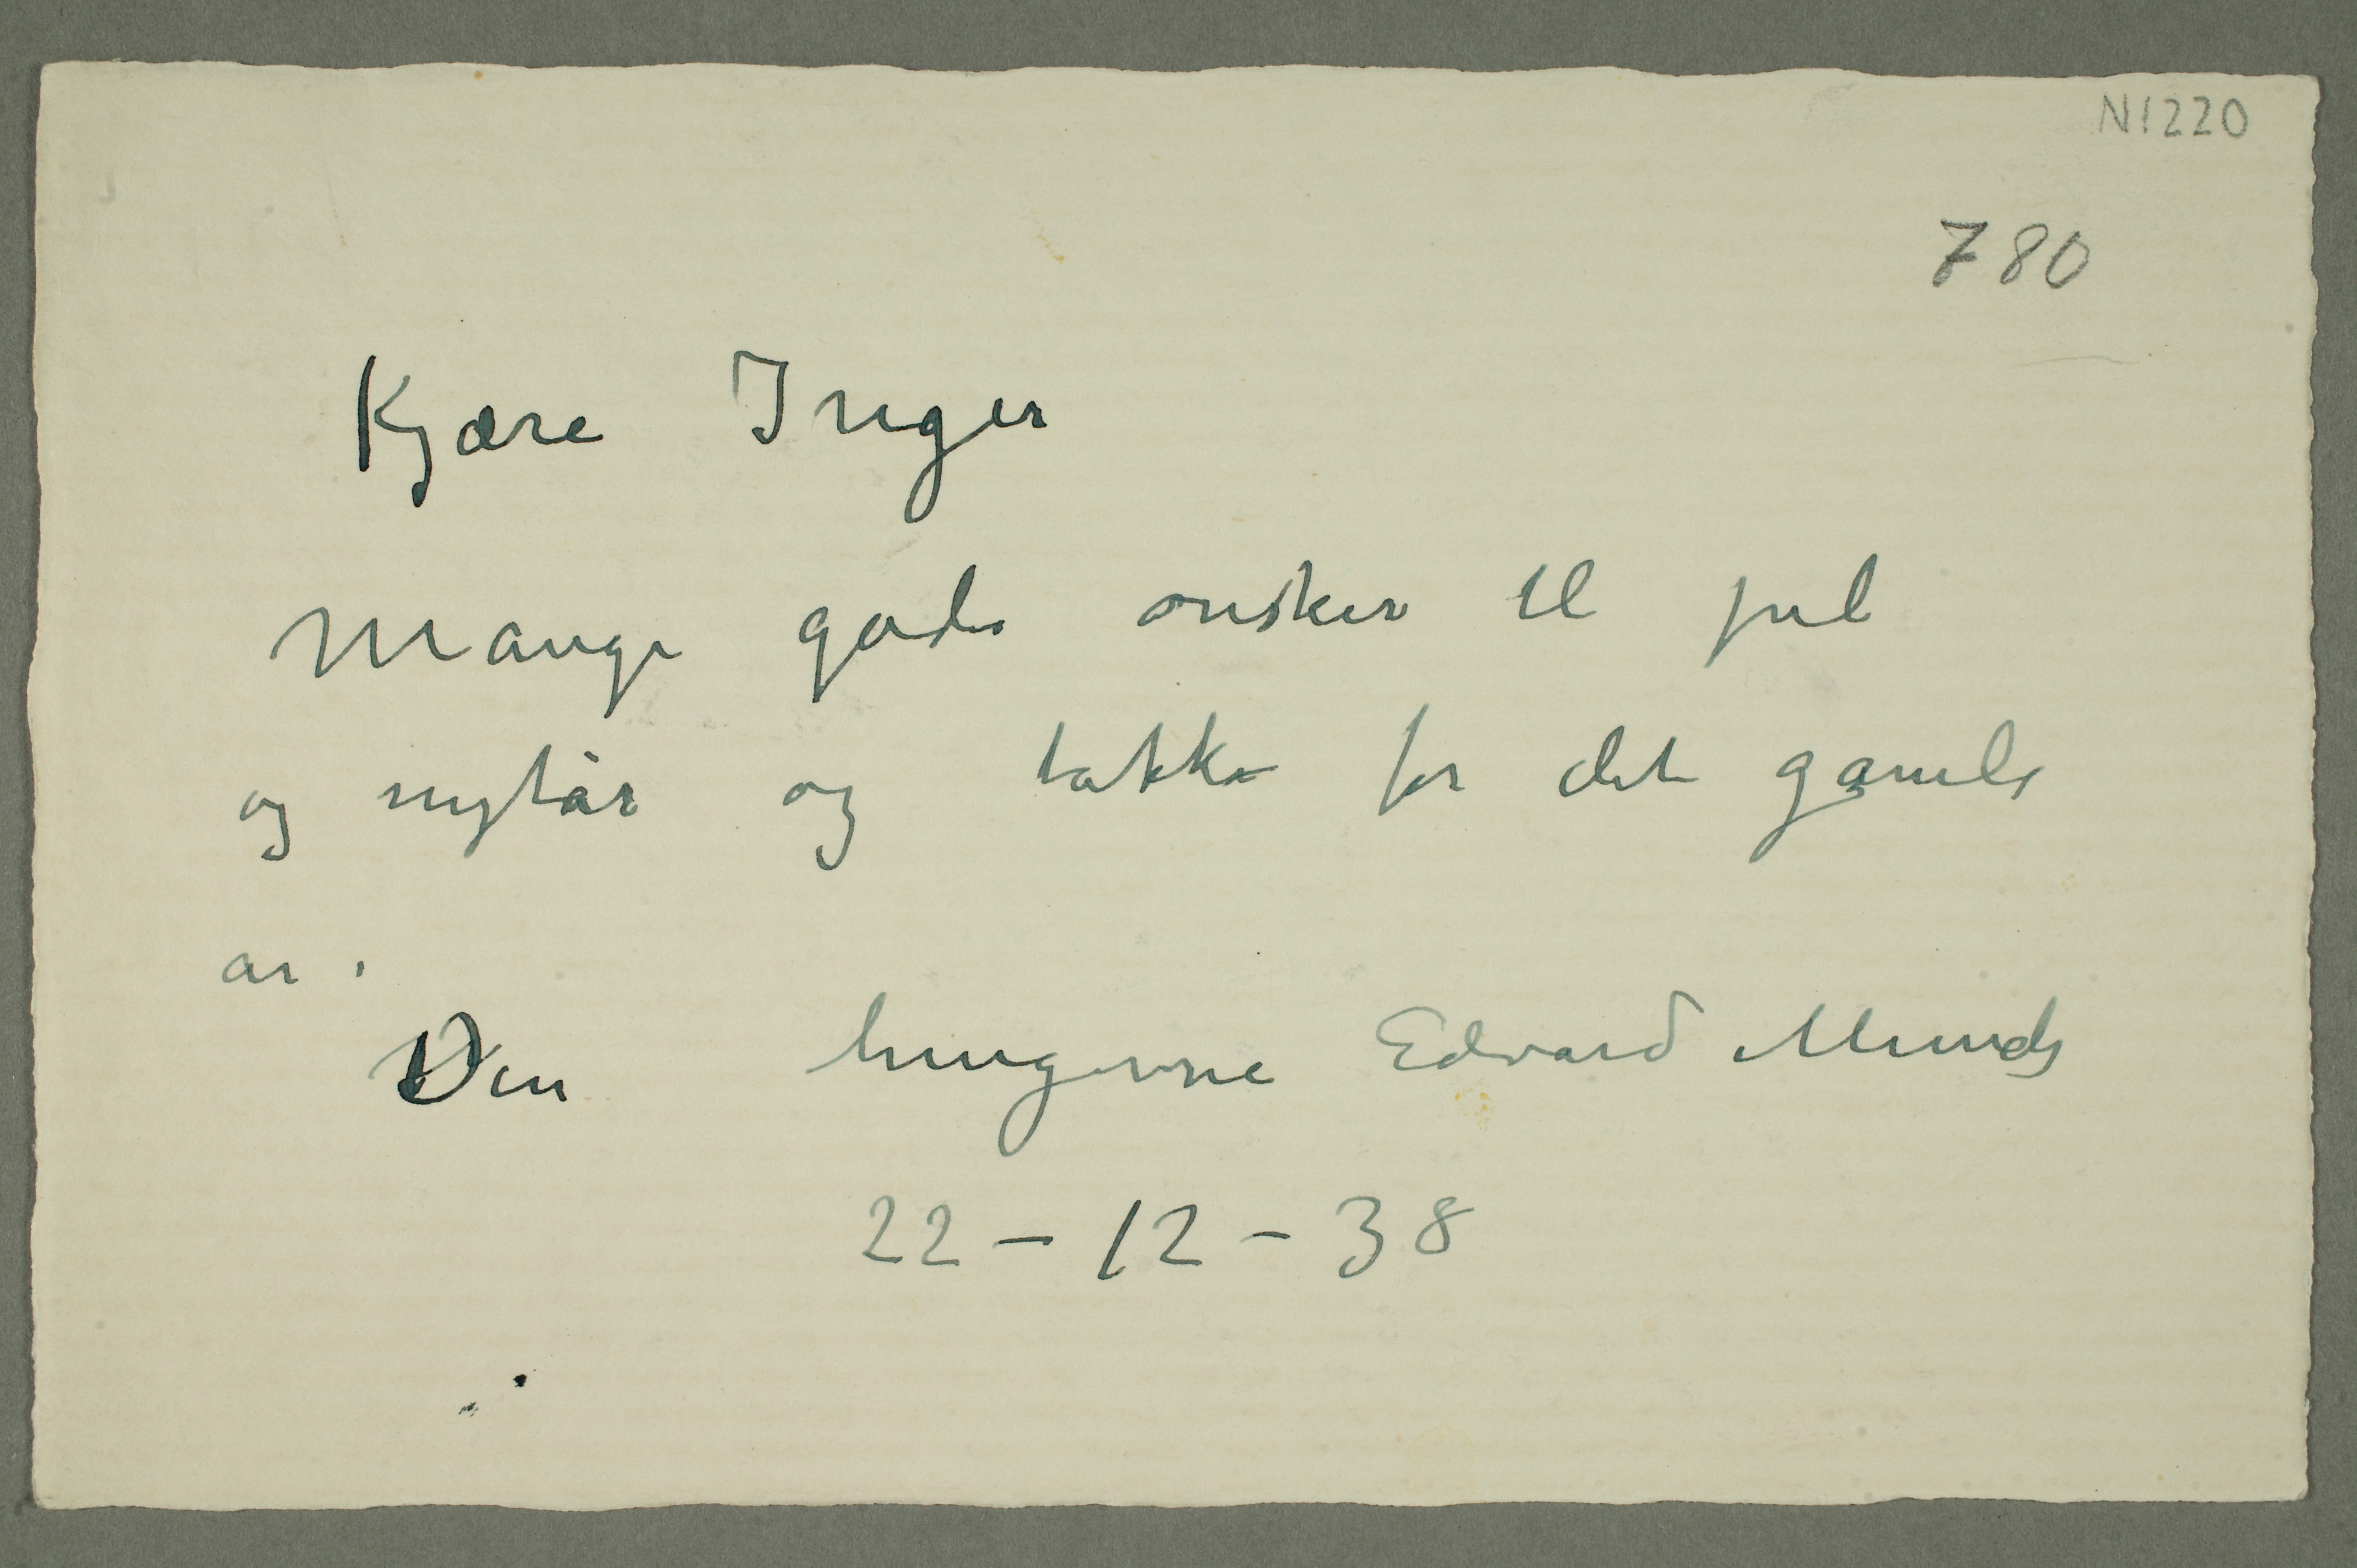 N1220
780
Kjære Inger
Mange gode ønsker til jul
og nytår og takke for det gamle
år.
Din hengivne Edvard Munch
22-12-38